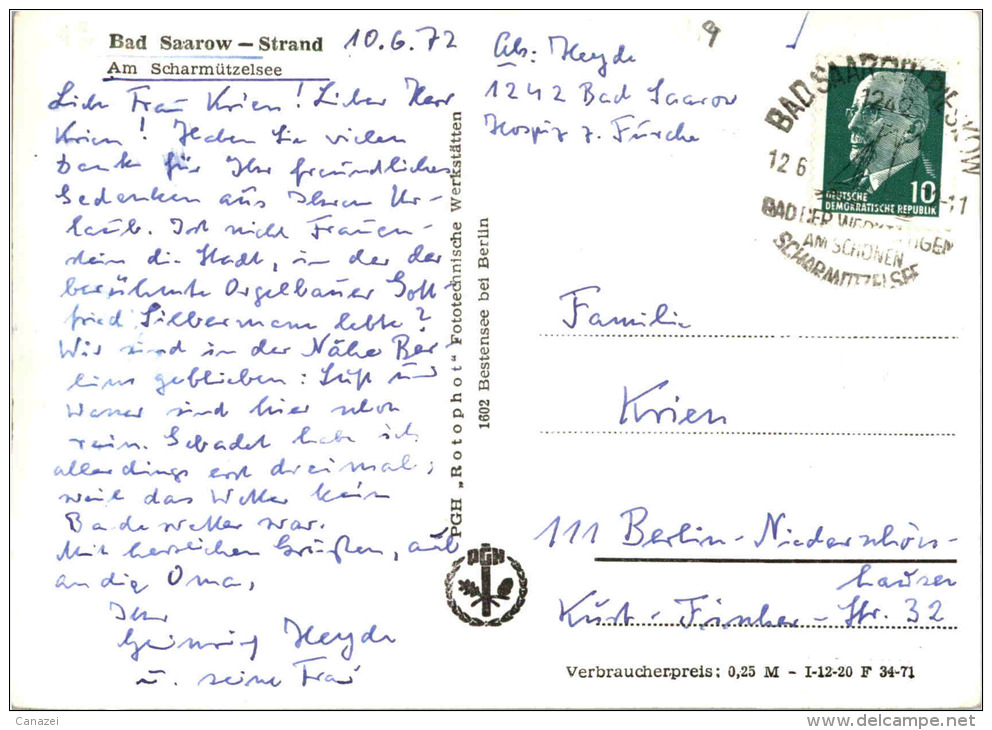 Bad Saarow — Strand
Am Scharmützelsee
10.6.72
Liebe Frau Krien! Lieber Herr
Krien! Haben Sie vielen
Dank für Ihr freundliches
Gedenken aus Ihrem Ur-
laub. Ist nicht Frauen-
stein die Stadt, in der der
berühmte Orgelbauer Gott-
fried Silbermann lebte?
Wir sind in der Nähe Ber-
lins geblieben: Luft und
Wasser sind hier schon
rein. Gebadet habe ich
allerdings erst dreimal,
weil das Wetter kein
Badewetter war.
Mit herzlichen Grüßen, auch
an die Oma,
Ihr
Heinrich Heyde
u. seine Frau
PGH „Rotophot“ Fototechnische Werkstätten
1602 Bestensee bei Berlin
PGH
9
Ab: Heyde
1242 Bad Saarow
Hospiz z. Furche
BAD SAAROW-PIESKOW
1242
12 6
-11
BAD DER WERKTÄTIGEN
AM SCHÖNEN
SCHARMÜTZELSEE
10
DEUTSCHE
DEMOKRATISCHE REPUBLIK
Familie
Krien
111 Berlin-Niederschön-
hausen
Kurt-Fischer-Str. 32
Verbraucherpreis: 0,25 M - I-12-20 F 34-71
Canazei
delcampe.net